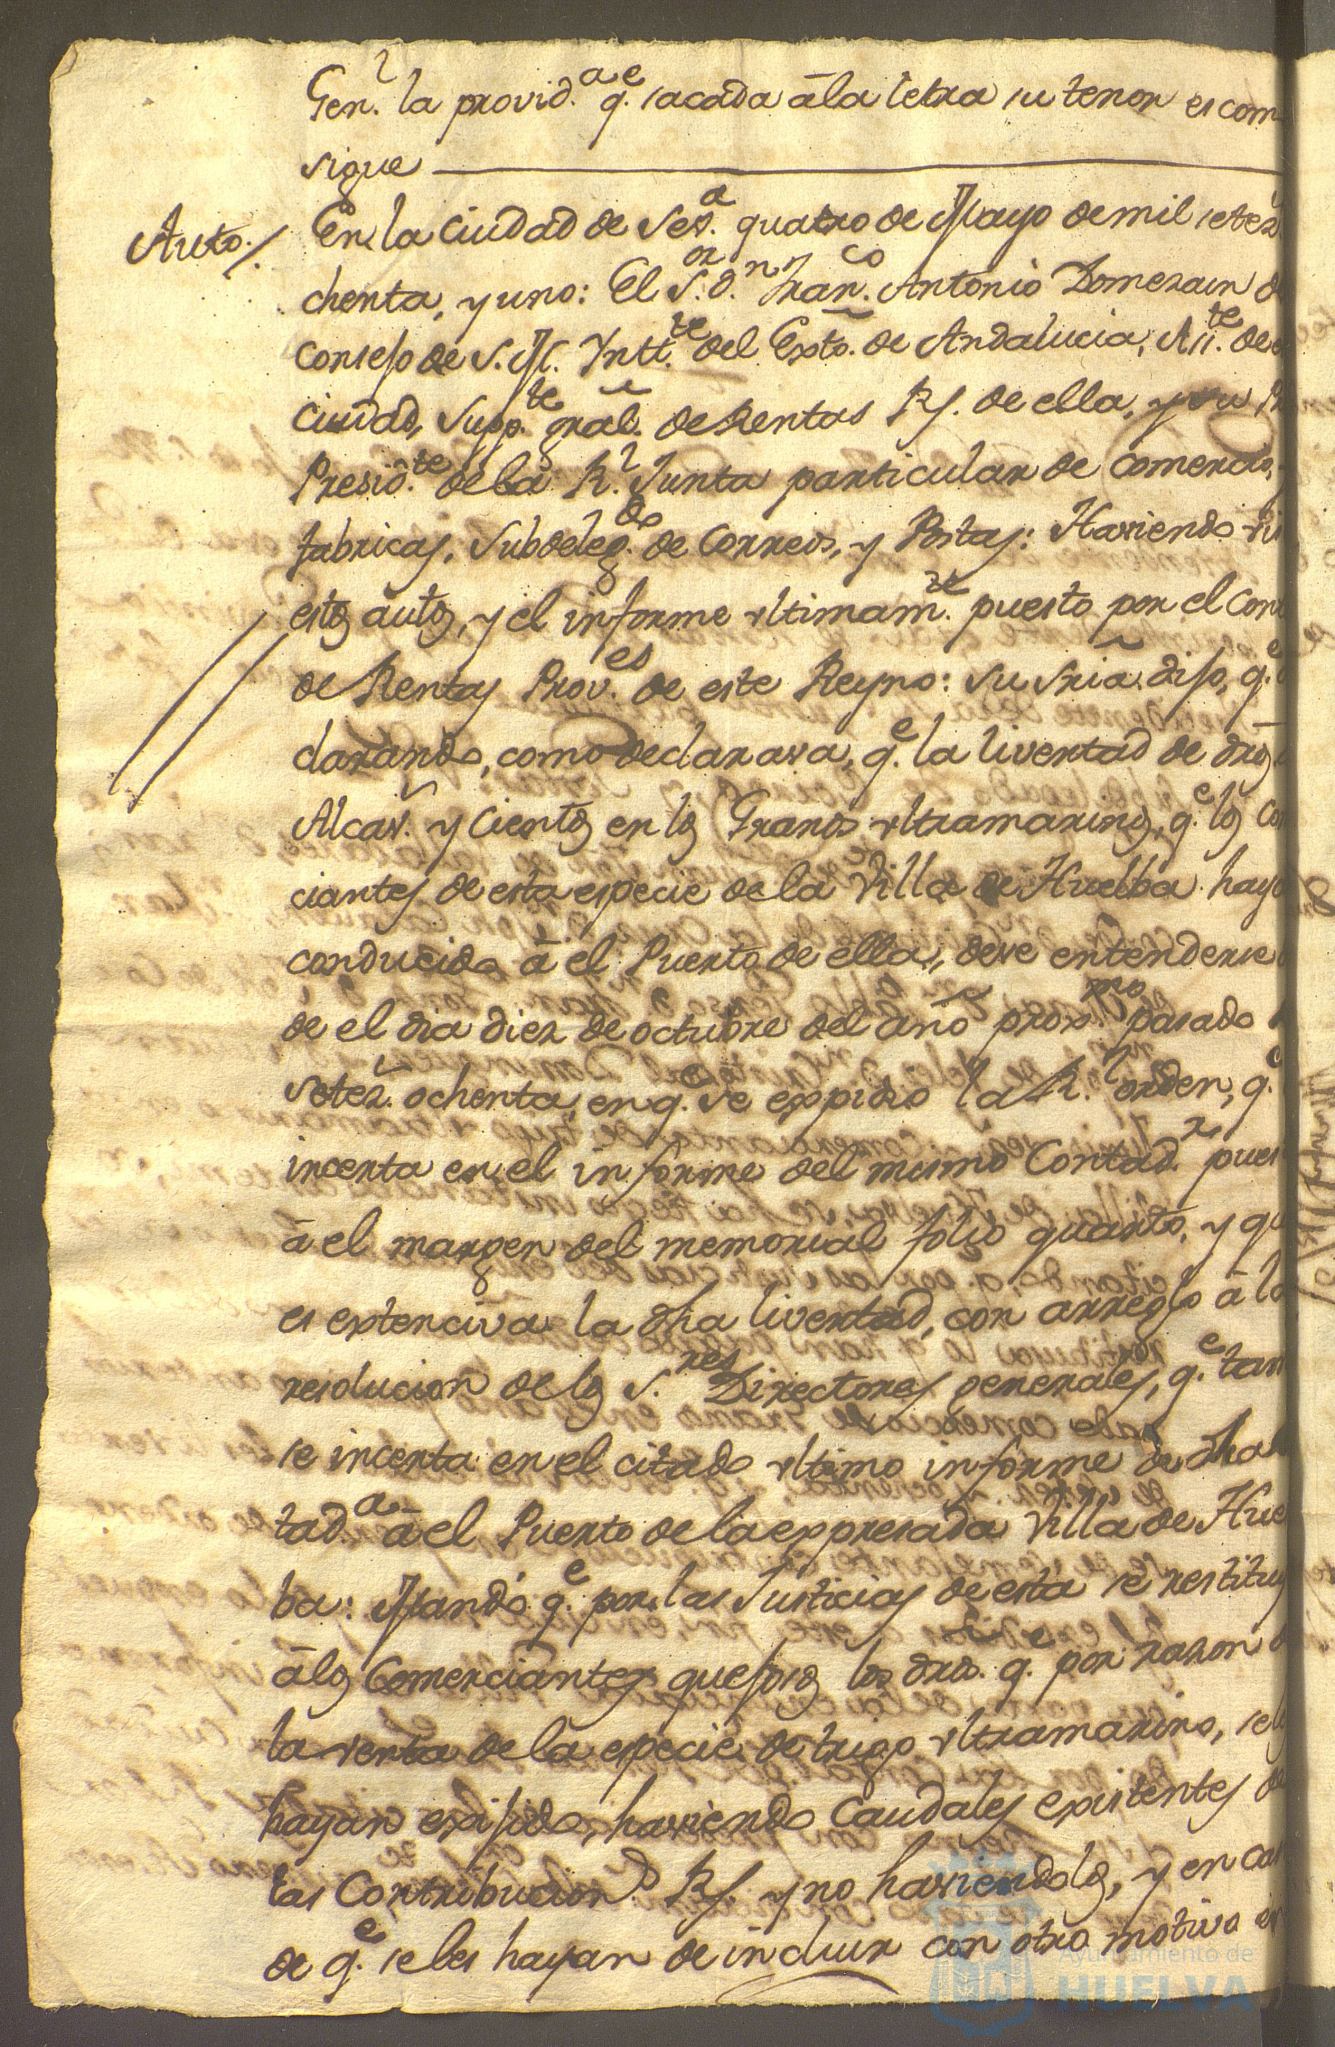 Gen.l la provid.a q.e sacada â la letra su tenor es com
sigue
Auto./
En la Ciudad de Sev.a quatro de Mayo de mil setez.
chenta, y uno: El S.or d.n Fran.co Antonio Domezain d
Consejo de S. M. Yntt.te del Exto. de Andalucia, Asi.te de
Ciudad, Supp.te gral. de Rentas Rs. de ella, y su
Presid.te de la R.l Junta particular de Comercio,
fabricas, Subdeleg.do de Correos, y Postas: Haviendo vis
estos autos, y el informe ultimam.te puesto por el Con
de Rentas Prov.es de este Reyno: Su Sria. dijo, q.e
clarando, como declarava, q.e la livertad de dros
Alcav. y Cientos en los Granos ultramarinos, q.e los Co
ciantes de esta especie de la Villa de Huelba haya
conducido â el Puerto de ella, deve entenderse
de el dia diez de octubre del año prox.mo pasado
setez. ochenta, en q.e se expidio la R.l orden, q.e
incerta en el informe del mismo Contad.r pues
â el margen del memorial folio quarto, y qu
es extenciva la dha livertad, con arreglo â la
resolucion de los S.res Directores generales, q.e tam
se incerta en el citado ultimo informe de dha
tad.a â el Puerto de la expresada Villa de Huel
ba: Mandó q.e por las Justicias de esta se restituy
â los Comerciantes quejosos los dros. q.e por razon
la venta de la especie de trigo ultramarino, se les
hayan exijido, haviendo Caudales existentes de
las Contribucion.s Rs. y no haviendolos, y en cas
de q.e se les hayan de incluir con otro motivo en
Ayuntamiento de
HUELVA